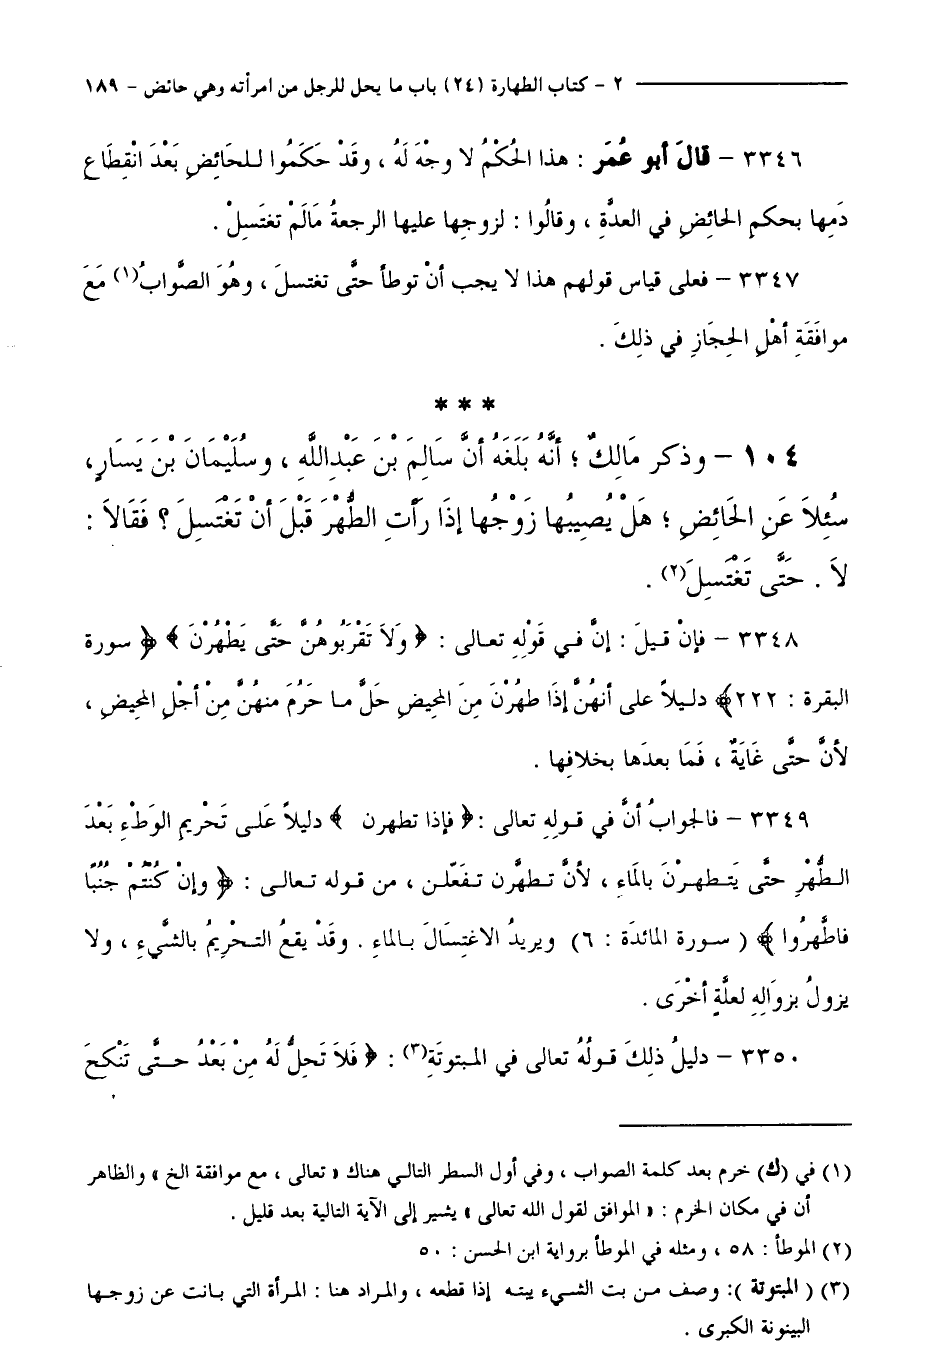 ٢ - كتاب الطهارة (٢٤) باب ما يحل للرجل من امرأته وهي حائض - ١٨٩
٣٣٤٦ - قالَ أبو عُمَر : هذا الحُكْمُ لا وجْهَ لَهُ ، وقَدْ حَكَمُوا للحَائضِ بَعْدَ انْقِطَاعِ
دَمِها بحكمِ الحائِضِ في العدَّةِ ، وقالُوا : لزوجِها عليها الرجعةُ مَالَمْ تغتَسِلْ .
٣٣٤٧ - فعلى قياس قولهم هذا لا يجب أنْ توطأ حتَّى تغتسلَ ، وهُوَ الصَّوابُ(١) مَعَ
موافَقَةِ أهْلِ الحِجَازِ في ذلِكَ .
* * *
١٠٤ - وذكر مَالِكٌ ؛ أنَّهُ بَلَغَهُ أنَّ سَالِمَ بْنَ عَبْدِاللَّهِ ، وسُلَيْمَانَ بْنَ يَسَارٍ،
سُئِلاَ عَنِ الحَائِضِ ؛ هَلْ يُصِيبُها زَوْجُها إذَا رَأتِ الطُّهْرَ قَبْلَ أنْ تَغْتَسِلَ ؟ فَقَالاَ :
لاَ . حَتَّى تَغْتَسِلَ(٢) .
٣٣٤٨ - فإنْ قيلَ : إنَّ في قَوْلِهِ تعالى : ﴿ وَلاَ تَقْرَبُوهُنَّ حَتَّى يَطْهُرْنَ ﴾ ﴿ سورة
البقرة : ٢٢٢﴾ دليلاً على أنهُنَّ إذَا طهُرْنَ مِنَ المَحِيضِ حَلَّ ما حَرُمَ منهُنَّ مِنْ أجْلِ المَحِيضِ ،
لأنَّ حتَّى غَايَةٌ ، فَمَا بعدَها بخلافِها .
٣٣٤٩ - فالجوابُ أنَّ في قولِهِ تعالى : ﴿ فإذا تطهرن ﴾ دليلاً عَلى تَحْريمِ الوَطْءِ بَعْدَ
الطُّهْرِ حتَّى يَتطهرْنَ بالمَاءِ ، لأنَّ تطهَّرن تفَعّلن ، من قوله تعالى : ﴿ وإنْ كُنْتُمْ جنُبًا
فاطَّهرُوا ﴾ ( سورة المائدَة : ٦) ويريدُ الاغتِسَالَ بالماءِ . وقَدْ يقعُ التحْرِيمُ بالشَّيءِ ، ولا
يزولُ بزوَالِهِ لعلَّةٍ أخْرَى .
٣٣٥٠ - دليلُ ذلِكَ قولُهُ تعالى في المبتوتَةِ(٣) : ﴿ فَلاَ تَحِلُّ لَهُ مِنْ بَعْدُ حتَّى تَنْكِحَ
(١) في (ك) خرم بعد كلمة الصواب ، وفي أول السطر التالي هناك « تعالى ، مع موافقة الخ » والظاهر
أن في مكان الخرم : « الموافق لقول الله تعالى » يشير إلى الآية التالية بعد قليل .
(٢) الموطأ : ٥٨ ، ومثله في الموطأ برواية ابن الحسن : ٥٠
(٣) ( المبتوتة ): وصف من بت الشيء يبته إذا قطعه ، والمراد هنا : المرأة التي بانت عن زوجها
البينونة الكبرى .